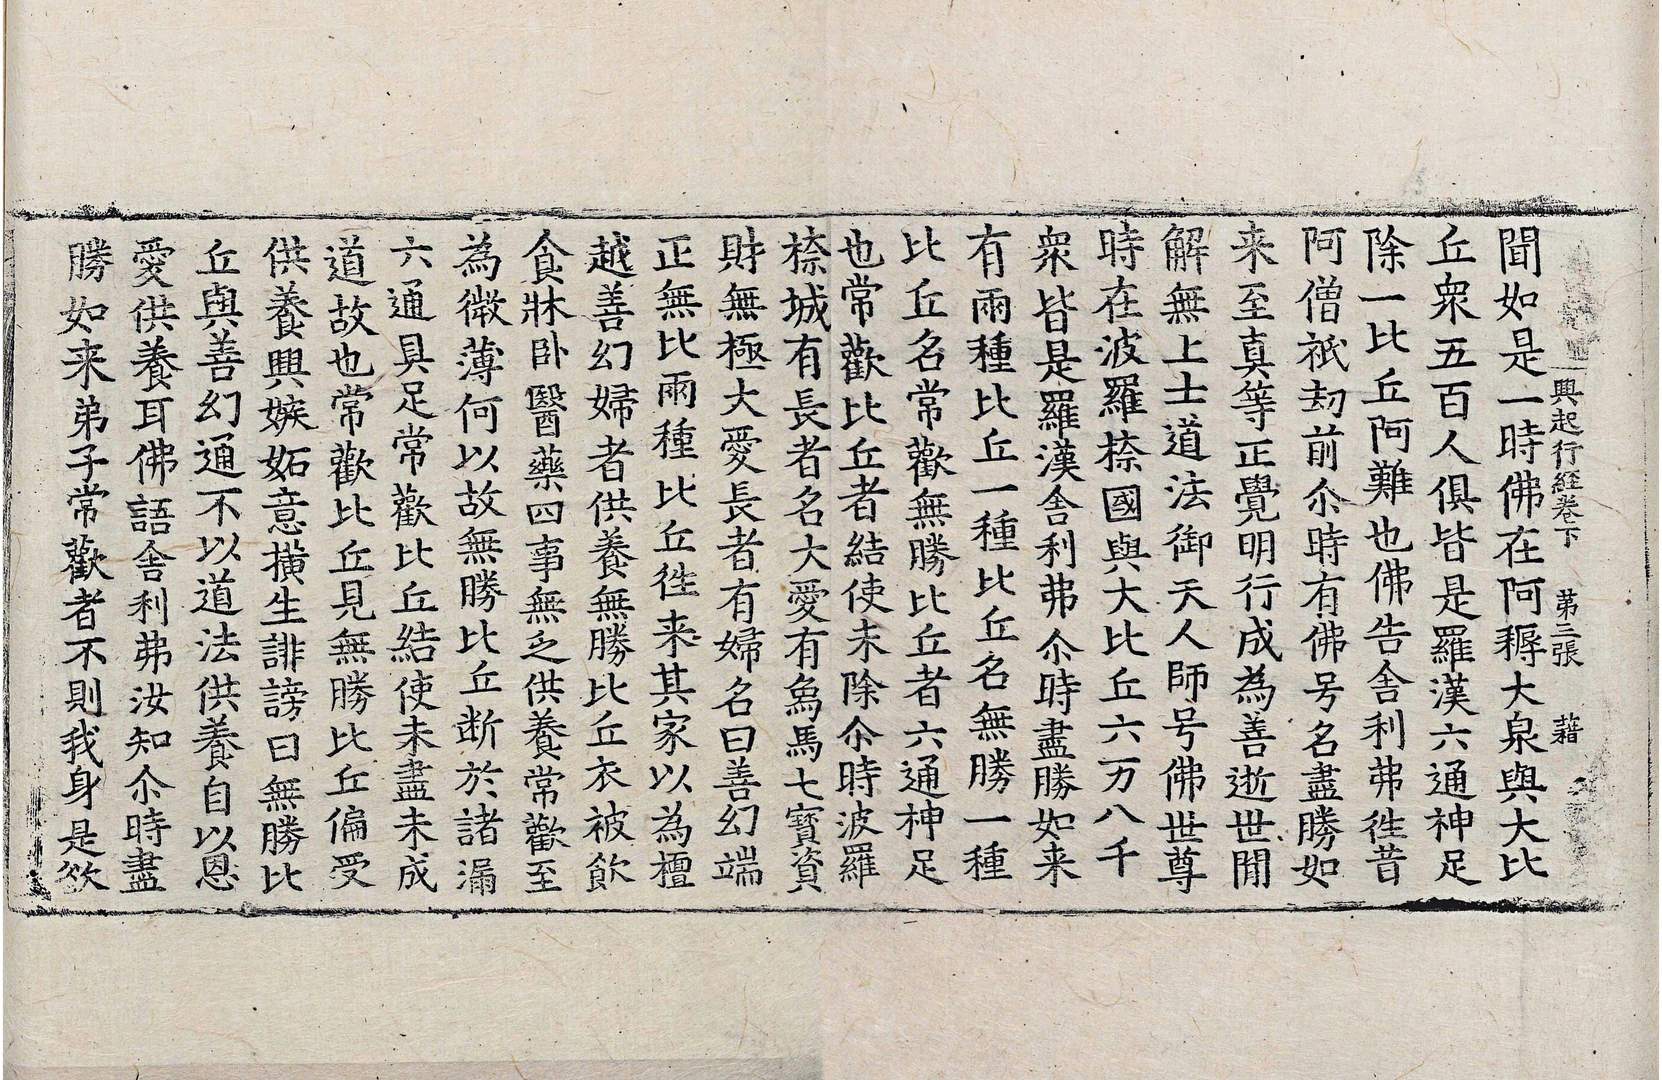 興起行経卷下 第三張 藉
聞如是一時佛在阿耨大泉與大比
丘衆五百人俱皆是羅漢六通神足
除一比丘阿難也佛告舎利弗徃昔
阿僧祇劫前尒時有佛号名盡勝如
来至真等正覺明行成為善逝世間
解無上士道法御天人師号佛世尊
時在波羅㮈國與大比丘六万八千
衆皆是羅漢舎利弗尒時盡勝如来
有兩種比丘一種比丘名無勝一種
比丘名常歡無勝比丘者六通神足
也常歡比丘者結使未除尒時波羅
㮈城有長者名大愛有象馬七寳資
財無極大愛長者有婦名曰善幻端
正無比兩種比丘徃来其家以為檀
越善幻婦者供養無勝比丘衣被飲
食牀卧醫藥四事無乏供養常歡至
為微薄何以故無勝比丘断於諸漏
六通具足常歡比丘結使未盡未成
道故也常歡比丘見無勝比丘偏受
供養興嫉妬意撗生誹謗曰無勝比
丘與善幻通不以道法供養自以恩
愛供養耳佛語舎利弗汝知尒時盡
勝如来弟子常歡者不則我身是欲